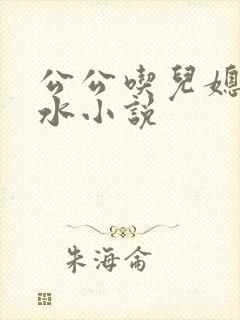 公公喫兒媳
水小説
朱海侖